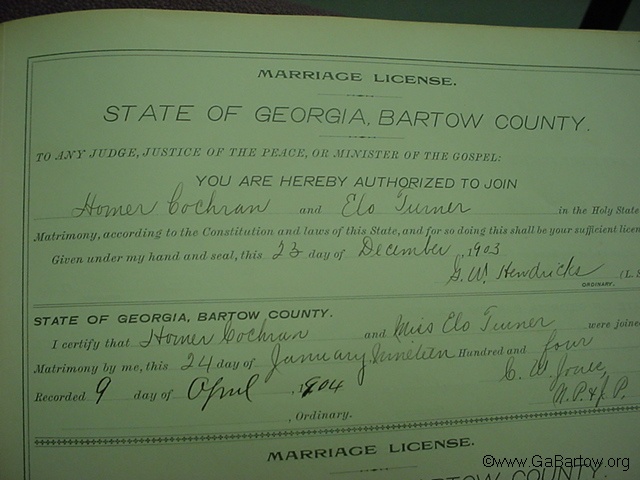 MARRIAGE LICENSE.
STATE OF GEORGIA, BARTOW COUNTY.
TO ANY JUDGE, JUSTICE OF THE PEACE, OR MINISTER OF THE GOSPEL:
YOU ARE HEREBY AUTHORIZED TO JOIN
Homer Cochran and Elo Turner in the Holy State
Matrimony, according to the Constitution and laws of this State, and for so doing this shall be your sufficient licen
Given under my hand and seal, this 23 day of December, 1903
G. W. Hendricks (L. S
ORDINARY.
STATE OF GEORGIA, BARTOW COUNTY.
I certify that Homer Cochran and Miss Elo Turner were joine
Matrimony by me, this 24 day of January Nineteen Hundred and four
Recorded 9 day of April, 1904 C. W. Jones,
N. P. & J. P.
, Ordinary.
MARRIAGE LICENSE.
BARTOW COUNTY
©www.GaBartow.org